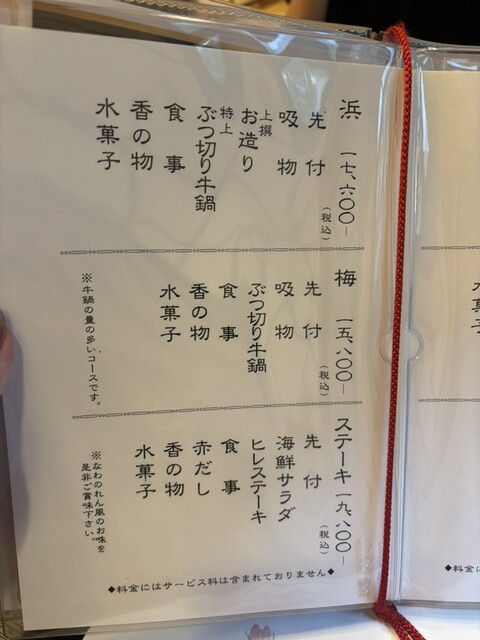 浜 一七、六〇〇―
（税込）
先付
吸物
上撰
お造り
特上
ぶつ切り牛鍋
食事
香の物
水菓子
梅 一五、八〇〇―
（税込）
先付
吸物
ぶつ切り牛鍋
食事
香の物
水菓子
※牛鍋の量の多いコースです。
ステーキ 一九、八〇〇―
（税込）
先付
海鮮サラダ
ヒレステーキ
食事
赤だし
香の物
水菓子
※なわのれん風のお味を
是非ご賞味下さい。
◆料金にはサービス料は含まれておりません◆
水菓子
◆料金に